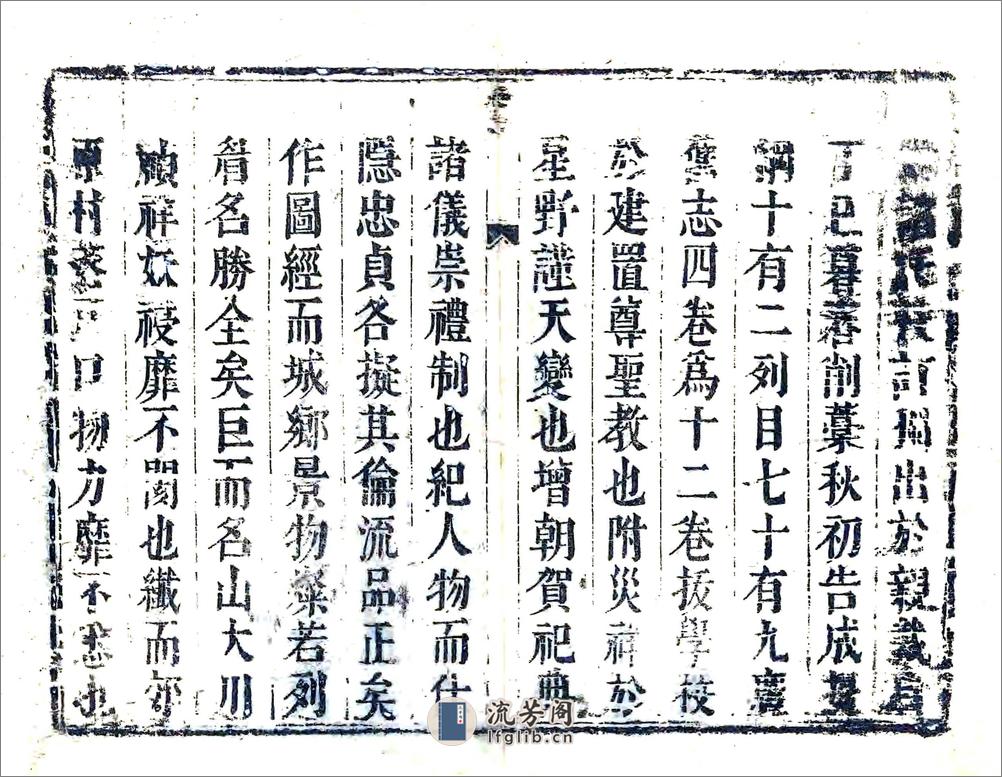 訂獨出於親裁自
丁巳暮春削藁秋初告成提
綱十有二列目七十有九廣
舊志四卷爲十二卷援學校
於建置尊聖教也附災祥於
星野謹天變也增朝賀祀典
諸儀崇禮制也紀人物而仕
隱忠貞各擬其倫流品正矣
作圖經而城鄉景物粲若列
眉名勝全矣巨而名山大川
禎祥妖祲靡不闕也纖而
村 戸口物力靡不悉也
流芳阁
lfglib.cn